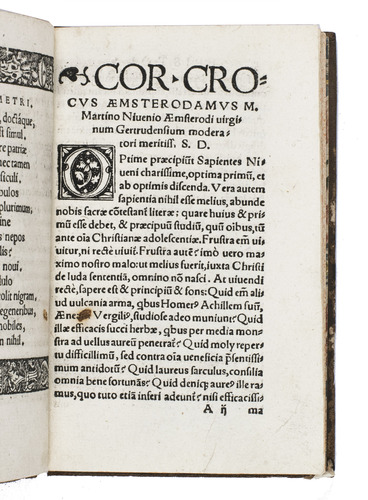 METRI,
doctáque,
st simul.
e patriæ
nec tamen
s
bulos
plurimum,
oris
s nepos
lis
noui,
dulo
colit nigram,
egeneribus,
nobiles,
n nihil.
COR·CRO-
CVS ÆMSTERODAMVS M.
Martino Niuenio Æmsterodi virgi
num Gertrudensium modera-
tori meritiss. S. D.
OPtime præcipiūt Sapientes Ni
ueni charissime, optima primū, et
ab optimis discenda. Vera autem
sapientia nihil esse melius, abunde
nobis sacræ cōtestant̄ literæ: quare huius & pri
mū esse debet, & præcipuū studiū, quū oībus, tū
ante oīa Christianæ adolescentiæ. Frustra em̄ ui
uitur, ni rectè uiuit̄. Frustra autē? imò vero ma
ximo nostro malo: ut melius fuerit, iuxta Christi
de Iuda sententiā, omnino nō nasci. At uiuendi
rectè, sapere est & principiū & fons: Quid em̄ ali
ud vulcania arma, qbus Homer9 Achillem suū,
Æneā Vergili9, studiose adeo muniunt? Quid
illæ efficacis succi herbæ, qbus per media mon
stra ad uellus aureum penetrat̄? Quid moly reper
tu difficillimū, sed contra oīa uenesicia pręsentissi
mum antidotū? Quid laureus sarculus, consilia
omnia bene fortunās? Quid deniqȝ aure9 ille ra
mus, quo tuto etiā inferi adeunt̄? nisi efficacissi
A ij ma